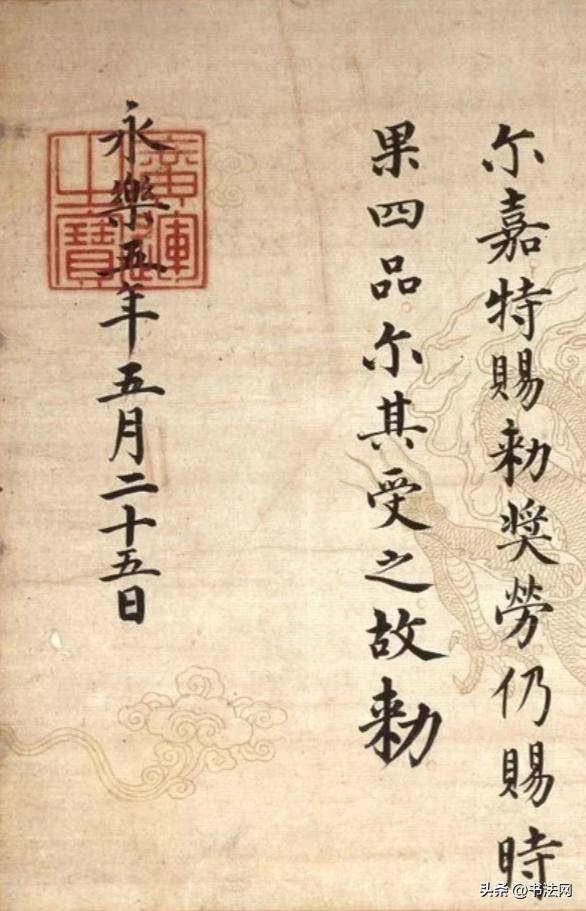 尔嘉特賜勑奬勞仍賜時
果四品尔其受之故勑
永樂五年五月二十五日
廣運之寶
头条 @书法网